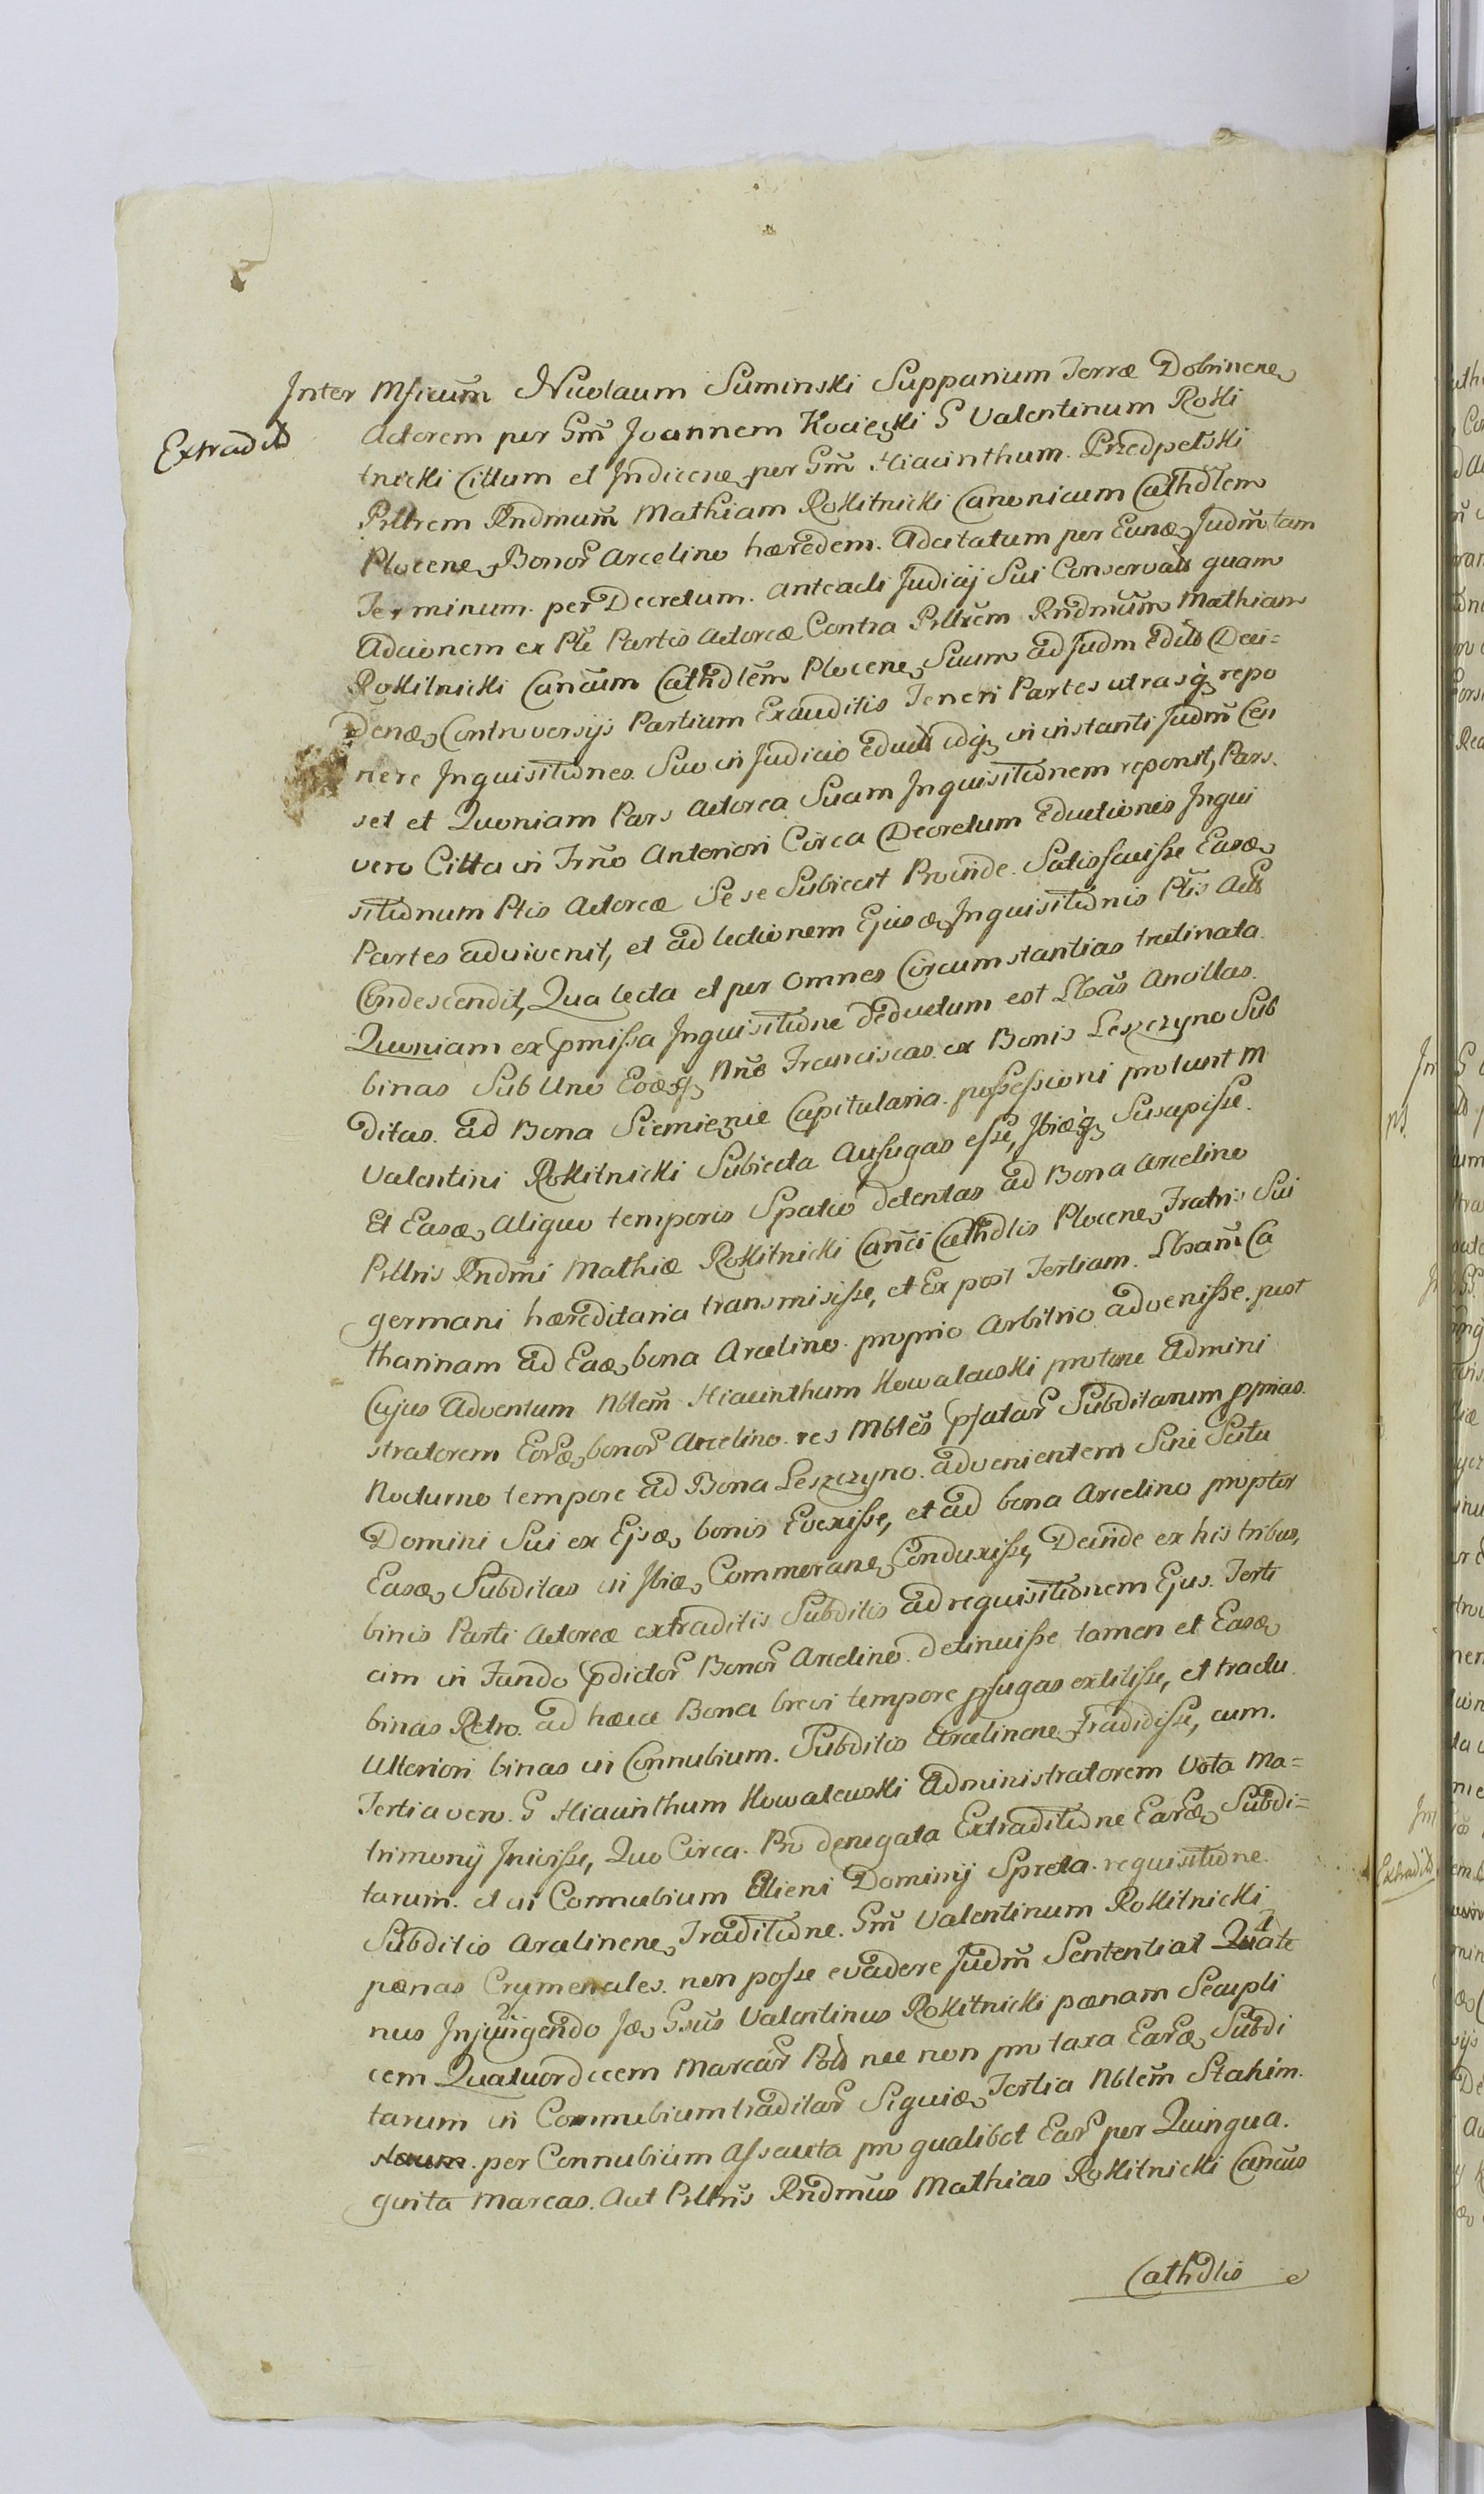 Inter Mficum Nicolaum Suminski Suppanium Terræ Dobrinene
Extradit
Actorem per Gm̃ Joannem Kocięcki G Valentinum Roki
tnicki Cittum et Indicene per Gm̃ Hiacinthum Przedpełski
Plltrem Rndmum̃ Mathiam Rokitnicki Canonicum Cathdlem
Plocene Bonor Arcelino hæredem Adcitatum per Eunđ Judm̃ tam
Terminum per Decretum anteacti Judicij Sui Conservat quam
Adcionem ex Pte Partis Actoreæ Contra Plltrem Rndmum̃ Mathiam
Rokitnicki Cancum Cathdlem̃ Plocene Suum ad Judm Edit Deci=
dend Controversijs Partium Exauditis Teneri Partes utrasq repo
nere Inquisitiones Suo in Judicio Educt idq in instanti Judm̃ Cen
set et Quoniam Pars Actorea Suam Inquisitionem reponit, Pars
vero Citta in Trño Anteriori Circa Decretum Eductionis Inqui
sitionum Ptis Actoreæ Se se Subiecit Proinde Satisfecisse Easd
Partes adinvenit, et ad lectionem Ejusd Inquisitionis Ptis Act
Condescendit, Qua lecta et per Omnes Circumstantias trutinata
Quoniam ex pmissa Inquisitione deductum est Lboas Ancillas
binas Sub Uno Eodq Nñe Franciscas ex Bonis Leszczyno Sub
ditas ad Bona Siemięnie Capitularia possessioni protunt M
Valentini Rokitnicki Subiecta Aufugas esse, Ibidq Suscepisse
Et Easd aliquo temporis Spatio detentas ad Bona Arcelino
Plltris Rndmi Mathiæ Rokitnicki Canci Cathdlis Plocene Fratris Sui
germani hæreditaria transmisisse, et Ex post Tertiam Lboam̃ Ca
tharinam ad Ead bona Arcelino proprio Arbitrio advenisse post
Cujus Adventum Nblem̃ Hiacinthum Kowalewski protunc Admini
stratorem Eord bonor Arcelino res Mbles pfatar Subditarum pprias
Nocturno tempore ad Bona Leszczyno advenientem Sine Scitu
Domini Sui ex Ejsd bonis Evexisse, et ad bona Arcelino propter
Easd Subditas in Ibid Commorane Conduxisse, Deinde ex his tribus
binis Parti Actoreæ extraditis Subditis ad requisitionem Ejus Terti
am in Fundo pdictor Bonor Arcelino detinuisse tamen et Easd
binas Retro ad hæcce Bona brevi tempore pfugas extitisse, et tractu
Ulteriori binas in Connubium Subditis Arcelinene Tradidisse, cum
Tertia vero G Hiacinthum Kowalewski Administratorem Vota Ma=
trimonij Inivisse, Quo Circa Pro denegata Extraditione Eard Subdi=
tarum et in Connubium Alieni Dominij Spreta requisitione
Subditis Arcelinene Traditione Gm̃ Valentinum Rokitnicki
pænas Crymenales non posse evadere Judm̃ Sententiat Quate
nus Injungendo Id Gsus Valentinus Rokitnicki pænam Scupli
cem Quatuordecem Marcar Pold nec non pro taxa Eard Subdi
tarum in Connubium traditar Siquid Tertia Nblem̃ Stahim
per Connubium Assecuta pro qualibet Ear per Quinqua
ginta Marcas Aut Plltris Rndmus Mathias Rokitnicki Cancus
Cathdlis